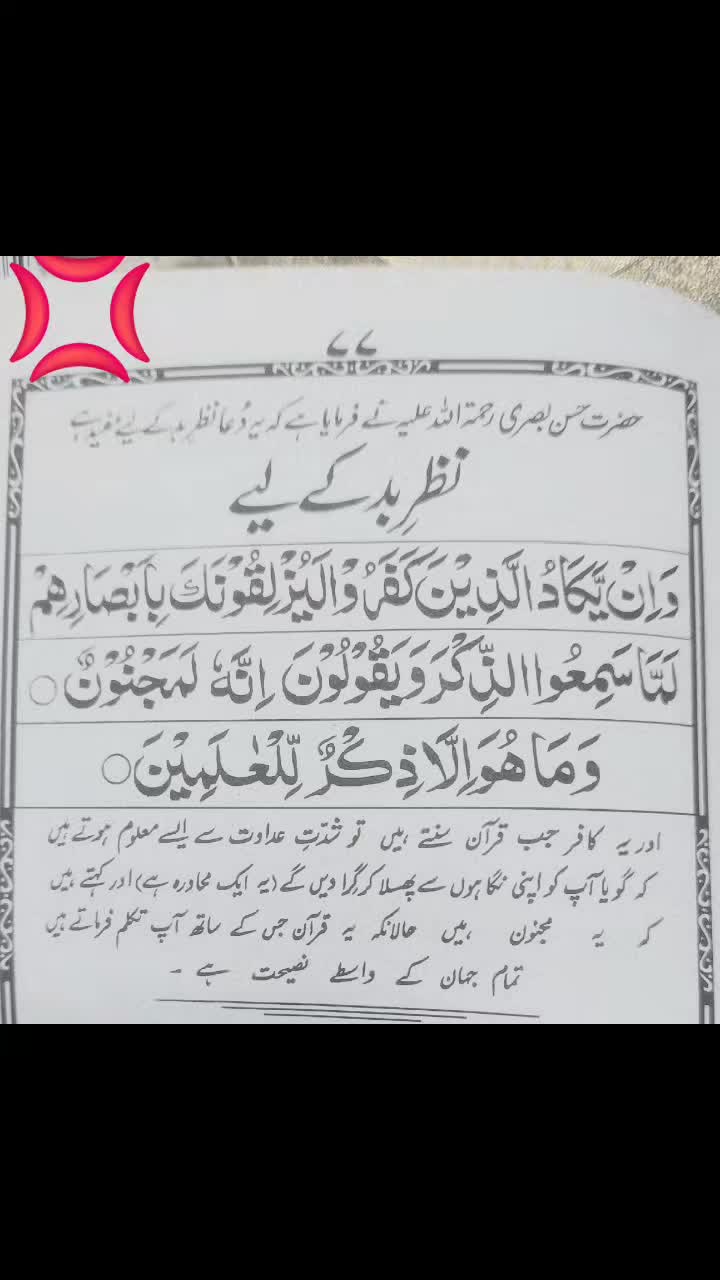 ۷۷
حضرت حسن بصری رحمۃ اللہ علیہ نے فرمایا ہے کہ یہ دُعا نظرِ بد کے لیے مفید ہے
نظرِ بد کے لیے
وَاِنْ يَّكَادُ الَّذِيْنَ كَفَرُوْا لَيُزْلِقُوْنَكَ بِاَبْصَارِهِمْ
لَمَّا سَمِعُوا الذِّكْرَ وَيَقُوْلُوْنَ اِنَّهٗ لَمَجْنُوْنٌ ○
وَمَا هُوَ اِلَّا ذِكْرٌ لِّلْعٰلَمِيْنَ ○
اور یہ کافر جب قرآن سنتے ہیں تو شدّتِ عداوت سے ایسے معلوم ہوتے ہیں
کہ گویا آپ کو اپنی نگاہوں سے پھسلا کر گرا دیں گے (یہ ایک محاورہ ہے) اور کہتے ہیں
کہ یہ مجنون ہیں حالانکہ یہ قرآن جس کے ساتھ آپ تکلم فرماتے ہیں
تمام جہان کے واسطے نصیحت ہے ۔